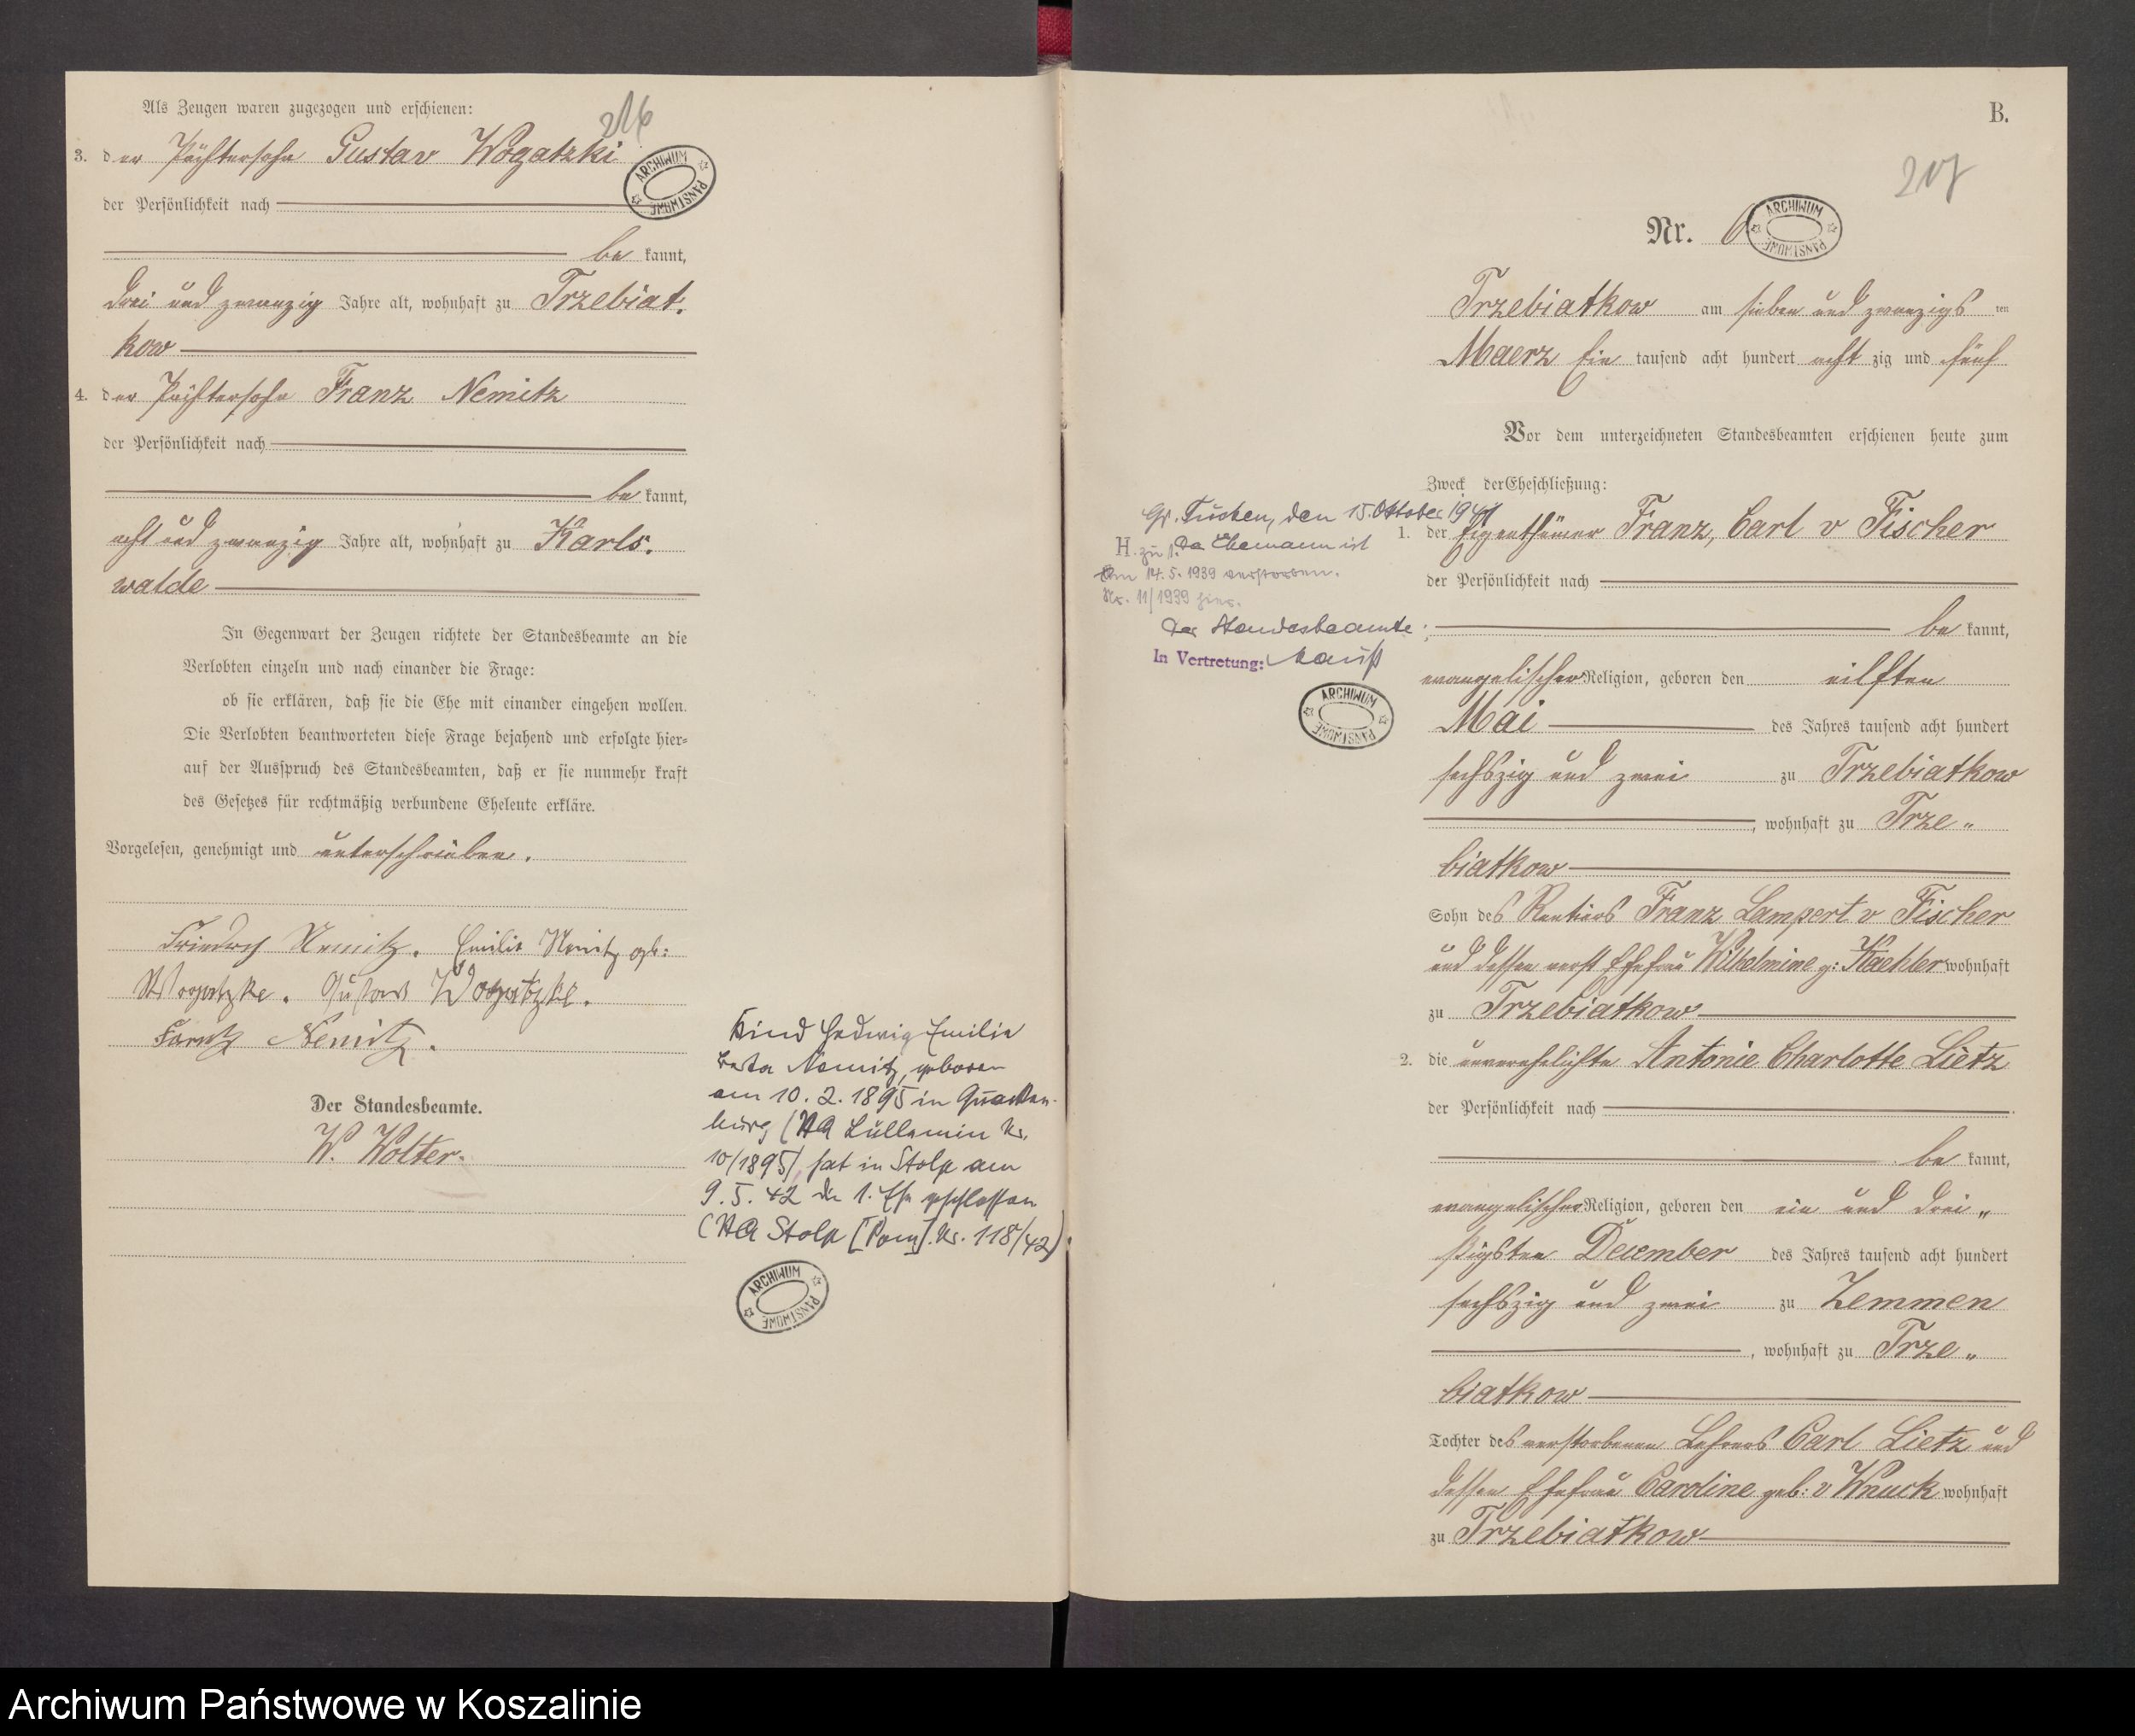 Als Zeugen waren zugezogen und erschienen:
216
3. der Pächtersohn Gustav Wogatzki
ARCHIWUM PAŃSTWOWE
der Persönlichkeit nach
be kannt,
drei und zwanzig Jahre alt, wohnhaft zu Trzebiat-
kow
4. der Pächtersohn Franz Nemitz
der Persönlichkeit nach
be kannt,
acht und zwanzig Jahre alt, wohnhaft zu Karls-
walde
In Gegenwart der Zeugen richtete der Standesbeamte an die
Verlobten einzeln und nach einander die Frage:
ob sie erklären, daß sie die Ehe mit einander eingehen wollen.
Die Verlobten beantworteten diese Frage bejahend und erfolgte hier=
auf der Ausspruch des Standesbeamten, daß er sie nunmehr kraft
des Gesetzes für rechtmäßig verbundene Eheleute erkläre.
Vorgelesen, genehmigt und unterschrieben.
Friedrich Nemitz. Emilie Nemitz geb:
Wogatzke. Gustav Wogatzke.
Nemitz.
Der Standesbeamte.
W. Wolter.
Kind Hedwig Emilie
Berta Nemitz, geboren
am 10. 2. 1895 in Quacken-
burg (StA Lüllemin Nr.
10/1895) hat in Stolp am
9. 5. 42 die 1. Ehe geschlossen
(StA Stolp [Pom]. Nr. 118/42).
ARCHIWUM PAŃSTWOWE
B.
217
Nr. 6
ARCHIWUM PAŃSTWOWE
Trzebiatkow am sieben und zwanzigs ten
Maerz Ein tausend acht hundert acht zig und fünf
Vor dem unterzeichneten Standesbeamten erschienen heute zum
Zweck der Eheschließung:
1. der Eigenthümer Franz, Carl v Fischer
der Persönlichkeit nach
be kannt,
evangelischer Religion, geboren den eilften
Mai des Jahres tausend acht hundert
sechszig und zwei zu Trzebiatkow
, wohnhaft zu Trze„
biatkow
Sohn des Rentiers Franz Lampert v Fischer
und dessen verst Ehefrau Wilhelmine g: Kaehler wohnhaft
zu Trzebiatkow
2. die unverehelichte Antonie Charlotte Lietz
der Persönlichkeit nach
be kannt,
evangelischer Religion, geboren den ein und drei„
ßigsten December des Jahres tausend acht hundert
sechszig und zwei zu Zemmen
, wohnhaft zu Trze„
biatkow
Tochter des verstorbenen Lehrers Carl Lietz und
dessen Ehefrau Caroline geb: v Wnuck wohnhaft
zu Trzebiatkow
Gr. Tuchen, den 15. Oktober
H. zu 1. Der Ehemann ist
am 14. 5. 1939 verstorben.
Nr. 11/1939 hier.
Der Standesbeamte:
In Vertretung:
ARCHIWUM PAŃSTWOWE
Archiwum Państwowe w Koszalinie